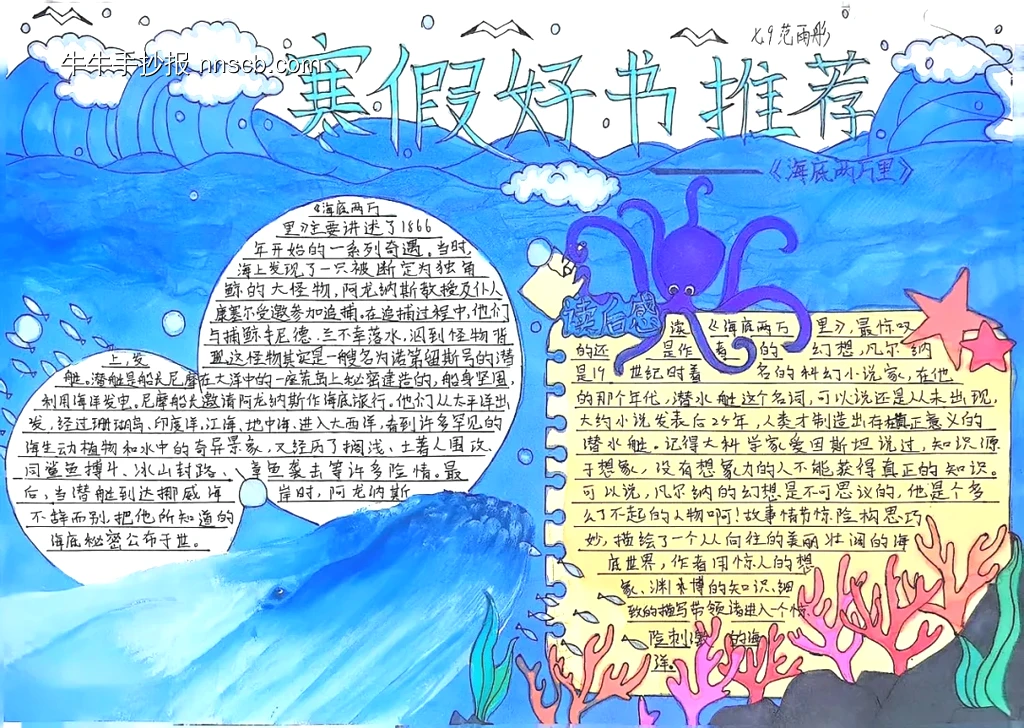 牛牛手抄报 nnscb.com
七9 范雨彤
寒假好书推荐
——《海底两万里》
《海底两万
里》主要讲述了1866
年开始的一系列奇遇。当时,
海上发现了一只被断定为独角
鲸的大怪物,阿龙纳斯教授及仆人
康塞尔受邀参加追捕。在追捕过程中,他们
与捕鲸手尼德.兰不幸落水,泅到怪物背
上,发现这怪物其实是一艘名为诺第留斯号的潜
艇。潜艇是船夫尼摩在大洋中的一座荒岛上秘密建造的,船身坚固,
利用海洋发电。尼摩船夫邀请阿龙纳斯作海底旅行。他们从太平洋出
发,经过珊瑚岛、印度洋、江海、地中海,进入大西洋,看到许多罕见的
海生动植物和水中的奇异景象,又经历了搁浅、土著人围攻、
同鲨鱼搏斗、冰山封路、章鱼袭击等许多险情。最
后,当潜艇到达挪威海岸时,阿龙纳斯
不辞而别,把他所知道的
海底秘密公布于世。
读后感
读《海底两万里》,最惊叹
的还是作者的幻想,凡尔纳
是19世纪时着名的科幻小说家,在他
的那个年代,潜水艇这个名词,可以说还是从未出现,
大约小说发表后25年,人类才制造出存在真正意义的
潜水艇。记得大科学家爱因斯坦说过,知识源
于想象,没有想象力的人不能获得真正的知识。
可以说,凡尔纳的幻想是不可思议的,他是个多
么了不起的人物啊!故事情节惊险构思巧
妙,描绘了一个人向往的美丽壮阔的海
底世界,作者用惊人的想
象、渊博的知识、细
致的描写带领读进入一个惊
险刺激的海
洋。